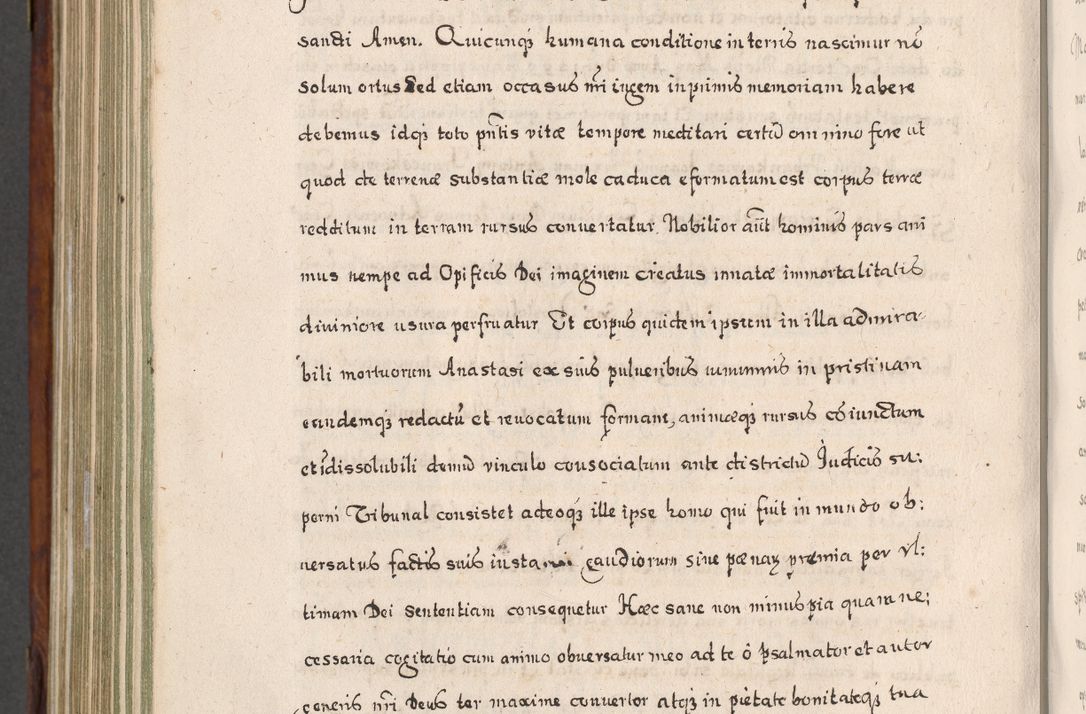 sancti Amen. Quicunqꝫ humana conditione in terris nascimur nō
solum ortus sed etiam occasus nr̄i iugem inprimis memoriam habere
debemus idqꝫ toto pn̄tis vitæ tempore meditari certū omnino fore ut
quod de terrenæ substantiæ mole caduca eformatum est corpus terræ
redditum in terram rursus conuertatur Nobilior aūt hominis pars ani
mus nempe ad Opificis Dei imaginem creatus innatæ immortalitatis
diuiniore usura perfruatur Et corpus quidem ipsum in illa admira-
bili mortuorum Anastasi ex suis pulueribus in pristinam
eandemqꝫ redactū et reuocatum formam, animæqꝫ rursus cōiunctum
et idissolubili demū vinculo consociatum ante districtū Iudicis su:
perni Tribunal consistet adeoqꝫ ille ipse homo qui fuit in mundo ob:
uersatus factis suis iusta gaudiorum siue pœnaꝝ præmia per vl:
timam Dei sententiam consequetur Hæc sane non minus pia quam ne;
cessaria cogitatio cum animo obuersatur meo ad te ô psalmator et autor
generis nr̄i Deus ter maxime conuertor atqꝫ in pietate bonitateqꝫ tua